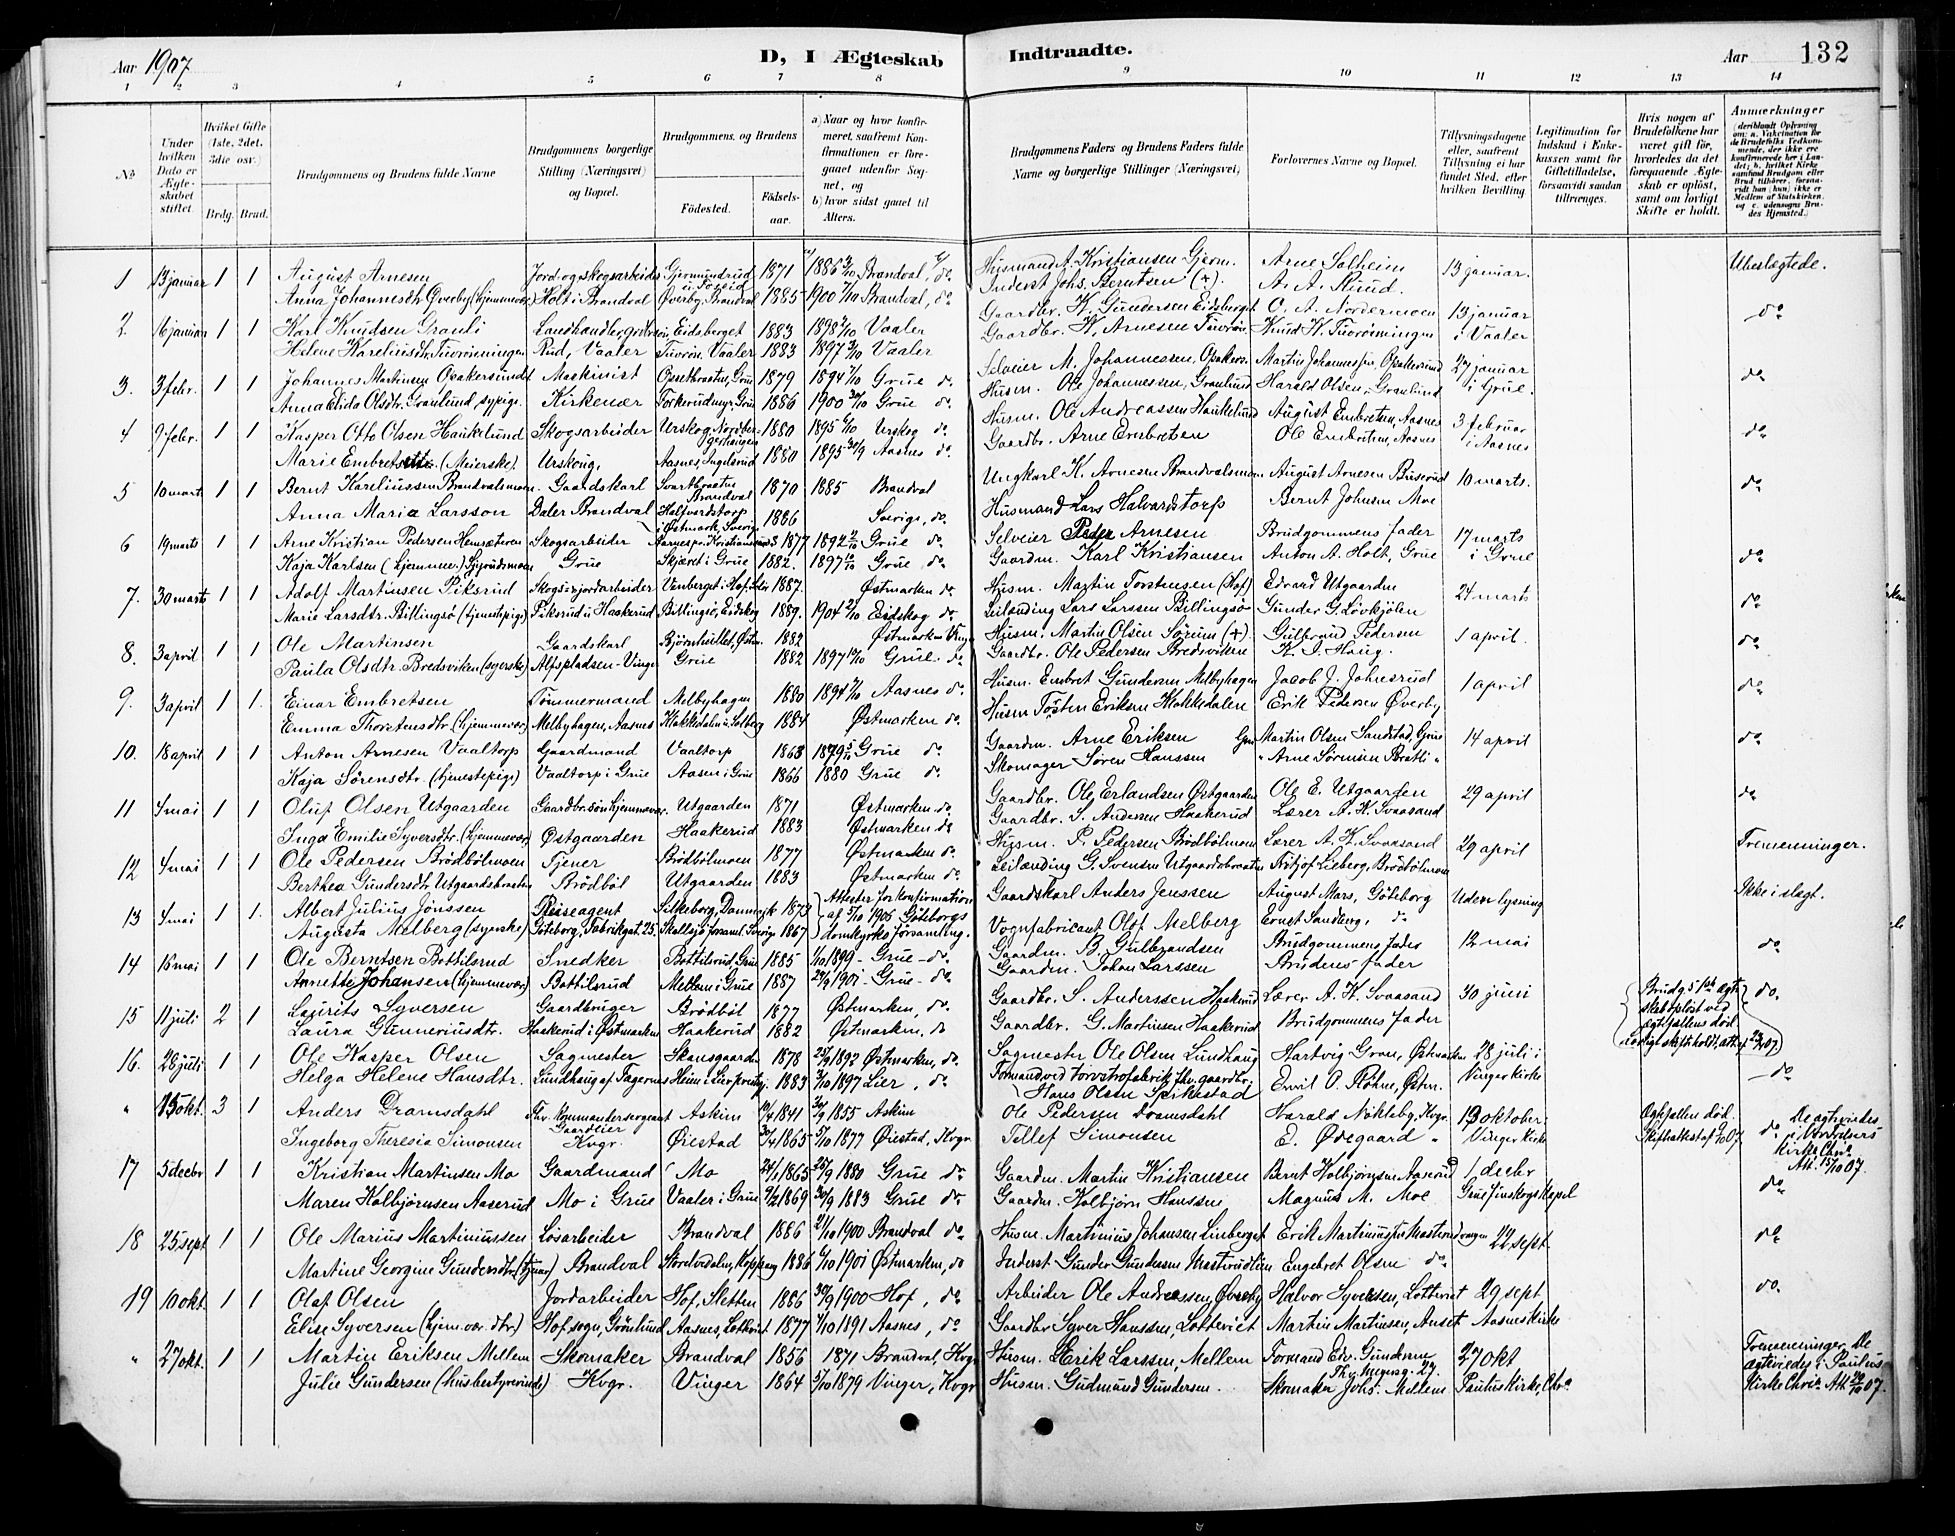 Aar 1907
D, I Ægteskab
Indtraadte.
Aar
132
1 2 3 4 5 6 7 8 9 10 11 12 13 14
No
Under hvilken Dato er Ægteskabet stiftet.
Hvilket Gifte (1ste, 2det, 3die osv.)
Brdg. Brud.
Brudgommens og Brudens fulde Navne
Brudgommens borgerlige Stilling (Næringsvei) og Bopæl.
Brudgommens og Brudens
Fødested.
Fødselsaar.
a) Naar og hvor konfirmeret, saafremt Konfirmationen er foregaaet udenfor Sognet, og
b) hvor sidst gaaet til Alters.
Brudgommens Faders og Brudens Faders fulde Navne og borgerlige Stillinger (Næringsvei)
Forlovernes Navne og Bopæl.
Tillysningsdagene eller, saafremt Tillysning ei har fundet Sted, efter hvilken Bevilling
Legitimation for Indskud i Enkekassen samt for Giftetilladelse, forsaavidt saadan tiltrænges.
Hvis nogen af Brudefolkene har været gift før, hvorledes da det foregaaende Ægteskab er opløst, samt om lovligt Skifte er holdt.
Anmerkninger
1 13 januar 1 1 August Arnesen Jord og skogsarbeider Gjermundrud 1871 1886 Brandval, do Husmand A. Kristiansen Gjerm. Arne Solheim 13 januar. Ubeslægtede.
Anna Johannesdtr Øverby (hjemmevær.) Holt i Brandval Øverby Brandval 1885 1900 Brandval, do Inderst Johs. Berntsen (+). A. A. Skud.
2. 16 januar 1 1 Karl Knudsen Granli Landhandler Eidsberget 1883 1898 Vaaler Gaardbr. K. Gundersen Eidsberget O. A. Nordermoen 13 januar do
Helene Kareliusdtr Tuvrønningen Rud, Vaaler Tuvrøn. Vaaler 1883 1897 Vaaler Gaardbr. K. Arnesen Tuvrøn Knud K. Tuvrønningen i Vaaler
3. 3 febr. 1 1 Johannes Martinsen Opakersund Maskinist Opsetbraaten, Grue 1879 1894 Grue do Selveier M. Johannessen, Opakers. Martin Johannessen, Opakersund 27 januar do
Anna Elida Olsdtr. Granlund, sypige Kirkenær Torkerudmyr, Grue 1886 1900 Grue do Husm. Ole Johannessen, Granlund Harald Olsen, Granlund i Grue.
4 9 febr. 1 1 Kasper Otto Olsen Haukelund Skogsarbeider Urskog 1880 1895 Urskog do Husm. Ole Andreassen Haukelund August Embretsen, Aasnes 3 februar do
Marie Embretsdtr. (Meierske) Urskoug, Aasnes, Ingelsrud 1880 1895 Aasnes do Gaardbr. Arne Embretsen Ole Embretsen, Aasnes i Aasnes
5 10 marts 1 1 Bernt Kareliussen Brandvalsmoen Gaardskarl Svartbraaten Brandval 1870 1885 Brandval Ungkarl K. Arnesen Brandvalsmoen August Arnesen Buserud 10 marts. do
Anna Maria Larsson Daler Brandval Halfverdstorp i Østmark, Sverige 1886 Sverige, do Husmand Lars Halvardstorp Bernt Johnsen Moe
6 19 marts 1 1 Arne Kristian Pedersen Skogsarbeider 1877 1892 Grue do Selveier Peder Arnesen Brudgommens fader 17 marts do
Kaja Karlsen (hjemmev.) Grue Skjæret i Grue 1882. 1897 Grue do Gaardm. Karl Kristiansen Anton A. Holt, Grue i Grue
7. 30 marts 1 1 Adolf Martinsen Piksrud Skogs- og jordarbeider Venberget i Hof 1887. Østmarken do Husm. Martin Torstensen (Hof) Edvard Utgaarden 24 marts do
Marie Larsdtr. Billingsø (tjenestepige) Piksrud i Haakerud Billingsø, Eidskog 1889. 1904 Eidskog do Leilænding Lars Larssen Billingsø Gunder G. Løvkjølen
8. 3 april 1 1 Ole Martinsen Gaardskarl Bjørnhullet, Østm. 1882 Østmarken Husm. Martin Olsen Sørum (+) Gulbrand Pedersen 1 april. do
Paula Olsdtr. Bredsviken (syerske) Alfspladsen Vinger Grue 1882 1897 Grue do Gaardbr. Ole Pedersen Bredsviken K. P. Haug.
9. 3 april 1 1. Einar Embretsen Tømmermand Melbyhagen 1880 1894 Aasnes do Husm. Embret Gundersen Melbyhagen Jacob J. Johnsrud 1 april do
Emma Thorstensdtr. (hjemmevær.) Melbyhagen, Aasnes Kakkedalen i Solberg 1884 Østmarken do Husm Tosten Eriksen Kakkedalen Erik Pedersen Øverby
10. 18 april 1 1 Anton Arnesen Vaaltorp Gaardmand Vaaltorp 1863 1879 Grue do Gaardm. Arne Eriksen Grue Martin Olsen Sandstad, Grue 14 april do
Kaja Sørensdtr. (tjenestepige) Vaaltorp i Grue Aasen i Grue 1866 1880 Grue do Skomager Søren Hanssen " Arne Sørensen Bratli "
11 4 mai 1 1 Oluf Olsen Utgaarden Gaardbr.søn hjemmevær. Utgaarden 1871 Østmarken do Gaardbr. Ole Erlandsen Østgaarden Ole E. Utgaarden 29 april do
Inga Emilie Syversdtr. (hjemmevær.) Østgaarden Haakerud 1883 Østmarken do Gaardbr. S. Andersen Haakerud Lærer A. K. Svaasand
12 4 mai 1 1 Ole Pedersen Brødbølmoen Tjener Brødbølmoen 1877 Østmarken do Husm. P. Pedersen Brødbølmoen Lærer A. K. Svaasand 29 april Tremenninger.
Berthea Gundersdtr. Utgaardsbraaten Brødbøl Utgaarden 1883 Østmarken do Leilænding G. Svensen Utgaardsbraaten Fritjof Lieberg, Brødbølmoen
13 4 mai 1 1. Albert Julius Jønssen Reiseagent Silkeborg, Danmark 1873 Attester for konfirmation Gaardskarl Anders Jenssen August Mars, Göteborg Uden lysning Ikke i slægt.
Augusta Melberg (syerske) Göteborg, Fabriksgat. 25. 1867 af 5/10 1906 Göteborgs domkyrko församling. Vognfabricant Olof Melberg Ernst Sandberg, do
14 16 mai 1 1 Ole Berntsen Bottilsrud Snedker Bottilsrud Grue 1885 1899 Grue do Gaardm. B. Gulbrandsen Brudgommens fader 12 mai do
Annette Johansen (hjemmevær.) Bottilsrud Mellem i Grue 1887 1901 Grue do Gaardm. Johan Larssen Brudens fader
15 11 juli 2 1 Laurits Syversen Gaardbruger Brødbøl 1877 Østmarken, do. Gaardbr. S. Anderssen Haakerud Lærer A. K. Svaasand 30 juni Brudg.s 1ste ægteskab opløst ved ægtfællens død do.
Laura Gunneriusdtr. Haakerud i Østmarken Haakerud 1882 Østmarken, do Gaardbr. G. Martinsen Haakerud Brudgommens fader
16. 28 juli 1 1 Ole Kasper Olsen Sagmester Skansgaarden 1878 1892 Østmarken, do. Sagmester Ole Olsen Lundhaug Hartvig Gran, Østmarken 28 juli i do
Helga Helene Hansdtr. Lundhaug af Tagernes Heim i Lier præstgj. 1883 1897 Lier, do Hans Olsen Spikkestad Emil O. Rohne, Østm. Vinger Kirke
" 15 okt. 3 1 Anders Dramsdahl Askim 1841 1855 Askim Ole Pedersen Dramsdahl Harald Nikleby, Kvgr. 13 oktober. Ægtfællen død. do De ægtviedes
Ingeborg Theresia Simonsen Kvgr. Øiestad 1865 1877 Øiestad, Kvgr Tellef Simonsen E. Ødegaard " Vinger Kirke Kirke Chra. Att. 15/10 07.
17 5 decbr 1 1 Kristian Martinsen Mo Gaardmand Mo 24/1 1865 1880 Grue do Gaardm. Martin Kristiansen Bernt Holbjørnsen Aaserud 1 decbr do
Maren Holbjørnsen Aaserud Mo i Grue Vaaler i Grue 1869 1883 Grue do Gaardm. Holbjørn Hanssen Magnus M. Moe Grue Finskogs Kapel
18 25 sept 1 1 Ole Marius Martiniussen Løsarbeider Brandval 1886 1900 Brandval do Husm. Martinius Johansen Linberget Erik Martiniussen 22 sept do
Martine Georgine Gundersdtr. (tjener) Brandval Storelvedalen, Koppang 1886 1901 Østmarken, do Inderst Gunder Gundersen Mastrudlien Engebret Olsen do
19 10 okt. 1 1 Olaf Olsen Jordarbeider Hof, Sletten 1886 1900 Hof, do Arbeider Ole Andreassen Øverby Halvor Syversen, Lotteriet 29 sept do.
Elise Syversen (hjem.vær. dtr.) Hof sogn, Grønlund Aasnes, Lotteriet 1877 1891 Aasnes, do Gaardbr Syver Hanssen, Lotteriet Martin Martinsen, Anset Aasnes Kirke
" 27 okt. 1 1 Martin Eriksen Mellem Skomaker Brandval 1856 1871 Brandval, Kvgr Husm. Erik Larssen, Mellem Formand Edv. Gundersen 27 okt Tremenninger. De ægtviedes i Paulus Kirke Chra Att. 07.
Julie Gundersen (husbestyrerinde) Kvgr. Vinger 1864 1879 Vinger, Kvgr Husm. Gudmund Gundersen. Skomaker Johs. Mellem Paulus Kirke, Chra